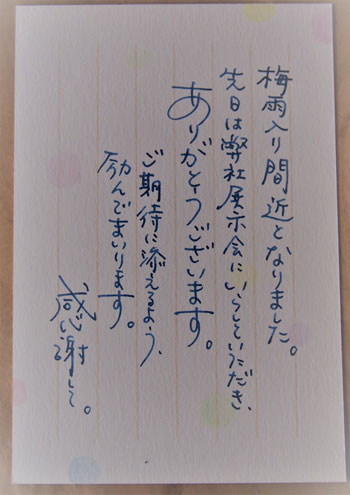 梅雨入り間近となりました。
先日は弊社展示会にいらしていただき、
ありがとうございます。
ご期待に添えるよう、
励んでまいります。
感謝して。